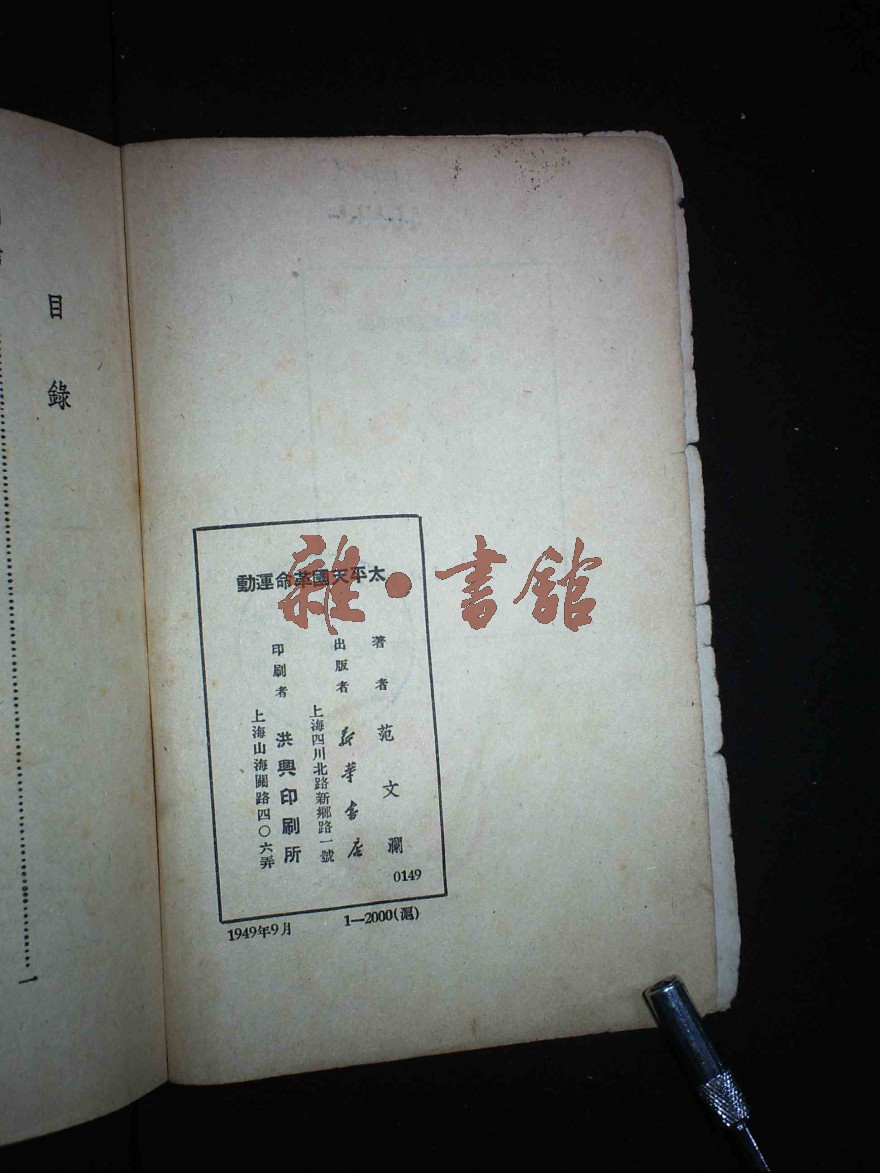 太平天國革命運動
著者 范文瀾
出版者 新華書店
上海四川北路新鄉路一號
印刷者 洪興印刷所
上海山海關路四〇六弄
0149
1949年9月 1—2000(滬)
雜·書館
目錄
一